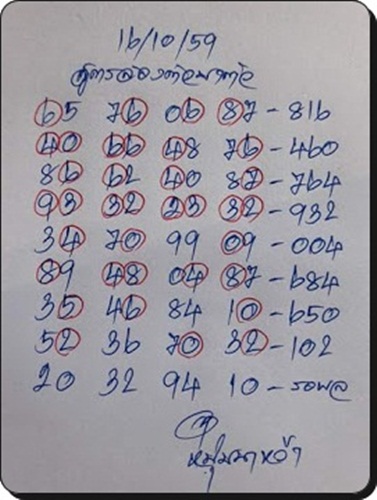 16/10/59
สูตรสองตัวบน
65 76 06 87 - 816
40 66 48 76 - 460
86 62 40 87 - 764
93 32 23 32 - 932
34 70 99 09 - 004
89 48 04 87 - 684
35 46 84 10 - 650
52 36 70 32 - 102
20 32 94 10 - รอผล